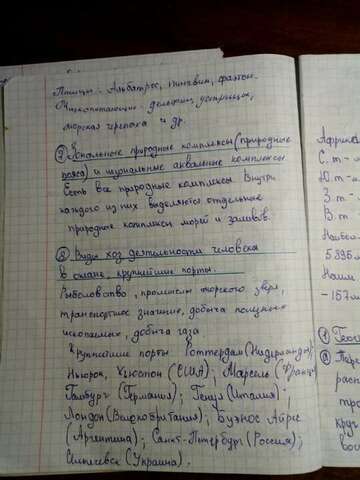 Птицы - Альбатрос, пингвин, фаэтон.
Млекопитающие - дельфин, устрицы,
морская черепаха и др.
⑦ Зональные природные комплексы (природные
пояса) и аквальные комплексы
Есть все природные комплексы. Внутри
каждого из них выделяются отдельные
природные комплексы морей и заливов.
⑧ Виды хоз. деятельности человека
в океане, крупнейшие порты.
Рыболовство, промыслы морского зверя,
транспортное значение, добыча полезных
ископаемых, добыча газа
Крупнейшие порты Роттердам (Нидерланды);
Нью-Йорк, Хьюстон (США); Марсель (Франция)
Гамбург (Германия); Генуя (Италия);
Лондон (Великобритания); Буэнос Айрес
(Аргентина); Санкт-Петербург (Россия);
Ильичевск (Украина).
Африка
С. т -
Ю. т -
З. т -
В. т -
5895 м
-157